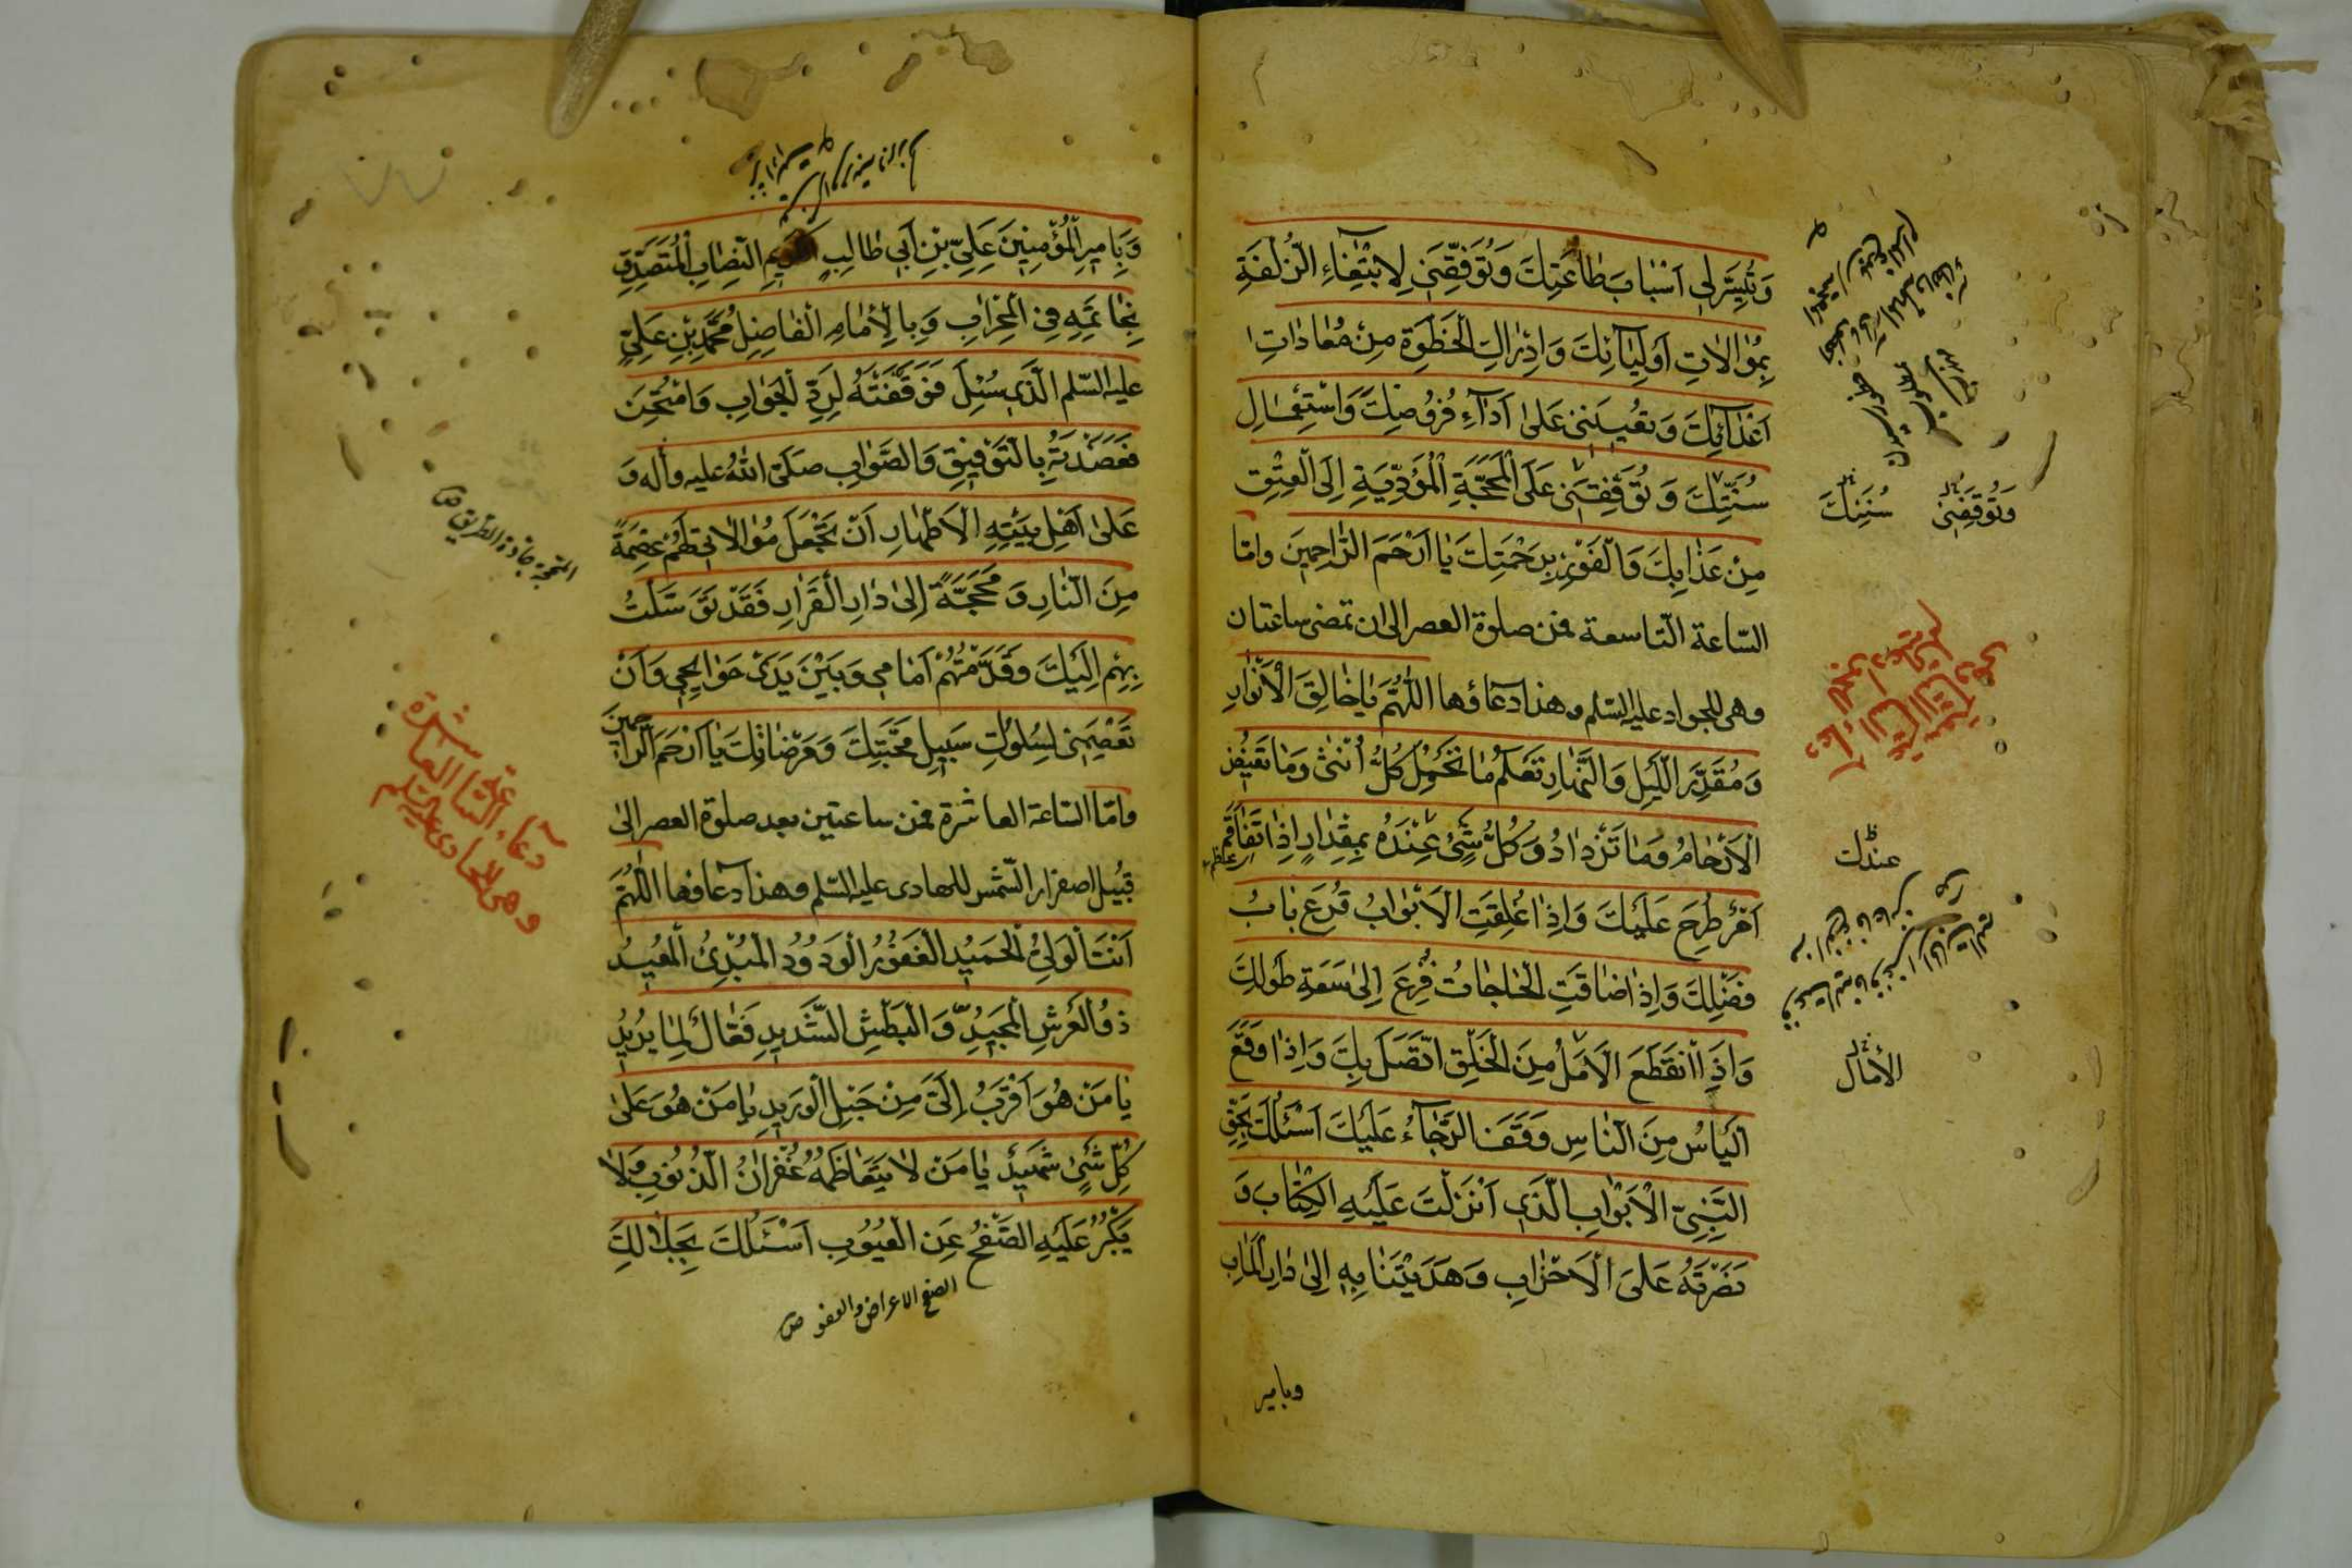 وَتُيَسِّرَ لِي اَسْبَابَ طَاعَتِكَ وَتُوَفِّقَنِي لِابْتِغَاءِ الزُّلْفَةِ
بِمُوالاتِ اَوْلِيَآئِكَ وَاِدْرَاكَ الْحَظْوَةِ مِنْ مُعَادَاتِ
اَعْدَآئِكَ وَتُعِينَنِي عَلىٰ اَدَآءِ فُرُوضِكَ وَاسْتِعْمَالِ
سُنَّتِكَ وَتُوقِفَنِي عَلَى الْمَحَجَّةِ الْمُؤَدِّيَةِ اِلَى الْعِتْقِ
مِنْ عَذَابِكَ وَالْفَوْزِ بِرَحْمَتِكَ يَا اَرْحَمَ الرَّاحِمِينَ وامّا
السّاعة التّاسعة فمن صلوة العصر الى ان تمضى ساعتان
وهى للجواد عليه السّلم وهذا دعاؤها اَللّٰهُمَّ يَا خَالِقَ الْاَنْوَارِ
وَمُقَدِّرَ اللَّيْلِ وَالنَّهَارِ تَعْلَمُ مَا تَحْمِلُ كُلُّ اُنْثىٰ وَمَا تَغِيضُ
الْاَرْحَامُ وَمَا تَزْدَادُ وَكُلُّ شَيْءٍ عِنْدَهُ بِمِقْدَارٍ اِذَا تَفَاقَمَ
اَمْرٌ طُرِحَ عَلَيْكَ وَاِذَا غُلِقَتِ الْاَبْوَابُ قُرِعَ بَابُ
فَضْلِكَ وَاِذَا ضَاقَتِ الْحَاجَاتُ فُزِعَ اِلىٰ سَعَةِ طَوْلِكَ
وَاِذَا انْقَطَعَ الْاَمَلُ مِنَ الْخَلْقِ اتَّصَلَ بِكَ وَاِذَا وَقَعَ
الْيَاْسُ مِنَ النَّاسِ وَقَفَ الرَّجَآءُ عَلَيْكَ اَسْئَلُكَ بِحَقِّ
النَّبِيِّ الْاَوَّابِ الَّذِي اَنْزَلْتَ عَلَيْهِ الْكِتَابَ وَ
نَصَرْتَهُ عَلَى الْاَحْزَابِ وَهَدَيْتَنَا بِهِ اِلىٰ دَارِ الْمَآبِ
وبامير
وَتُوقِفَنِي سُنَنِكَ
عندك
الآمال
وَبِاَمِيرِ الْمُؤْمِنِينَ عَلِيِّ بْنِ اَبِي طَالِبٍ الْكَرِيمِ النِّصَابِ الْمُتَصَدِّقِ
بِخَاتَمِهِ فِي الْمِحْرَابِ وَبِالْاِمَامِ الْفَاضِلِ مُحَمَّدِ بْنِ عَلِيٍّ
عليه السّلم الَّذِي سُئِلَ فَوَفَّقْتَهُ لِرَدِّ الْجَوَابِ وَامْتُحِنَ
فَعَضَدْتَهُ بِالتَّوْفِيقِ وَالصَّوَابِ صَلَّى اللهُ عليه وآله وَ
عَلىٰ اَهْلِ بَيْتِهِ الْاَطْهَارِ اَنْ تَجْعَلَ مُوَالَاتِي لَهُمْ عِصْمَةً
مِنَ النَّارِ وَمَحَجَّةً اِلىٰ دَارِ الْقَرَارِ فَقَدْ تَوَسَّلْتُ
بِهِمْ اِلَيْكَ وَقَدَّمْتُهُمْ اَمَامِي وَبَيْنَ يَدَيْ حَوَائِجِي وَاَنْ
تَعْصِمَنِي لِسُلُوكِ سَبِيلِ مَحَبَّتِكَ وَمَرْضَاتِكَ يَا اَرْحَمَ الرَّاحِمِينَ
وامّا السّاعة العاشرة فمن ساعتين بعد صلوة العصر الىٰ
قبيل اصفرار الشّمس للهادى عليه السّلم وهذا دعاؤها اَللّٰهُمَّ
اَنْتَ الْوَلِيُّ الْحَمِيْدُ الْغَفُوْرُ الْوَدُوْدُ الْمُبْدِئُ الْمُعِيْدُ
ذُو الْعَرْشِ الْمَجِيْدِ وَالْبَطْشِ الشَّدِيدِ فَعَّالٌ لِمَا يُرِيدُ
يَا مَنْ هُوَ اَقْرَبُ اِلَيَّ مِنْ حَبْلِ الْوَرِيدِ يَا مَنْ هُوَ عَلىٰ
كُلِّ شَيْءٍ شَهِيدٌ يَا مَنْ لَا يَتَعَاظَمُهُ غُفْرَانُ الذُّنُوبِ وَلَا
يَكْبُرُ عَلَيْهِ الصَّفْحُ عَنِ الْعُيُوبِ اَسْئَلُكَ بِجَلَالِكَ
الصفح الاعراض والعفو ص
المحجة جادة الطريق ص
دعاء السّاعة العاشرة
وهى للهادى عليه السّلم